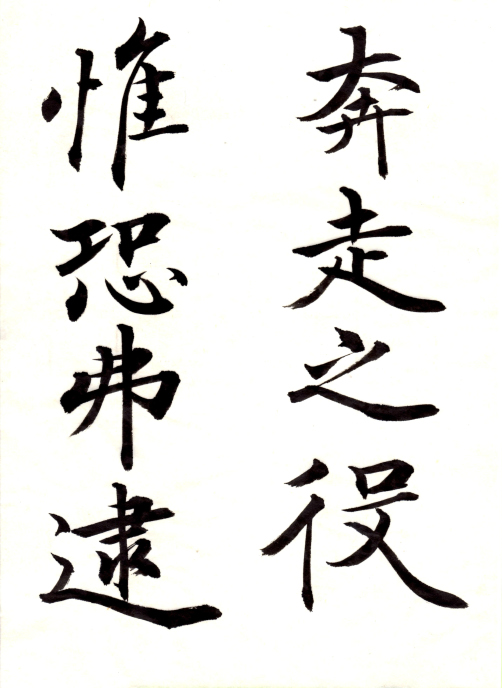 奔走之役
惟恐弗逮